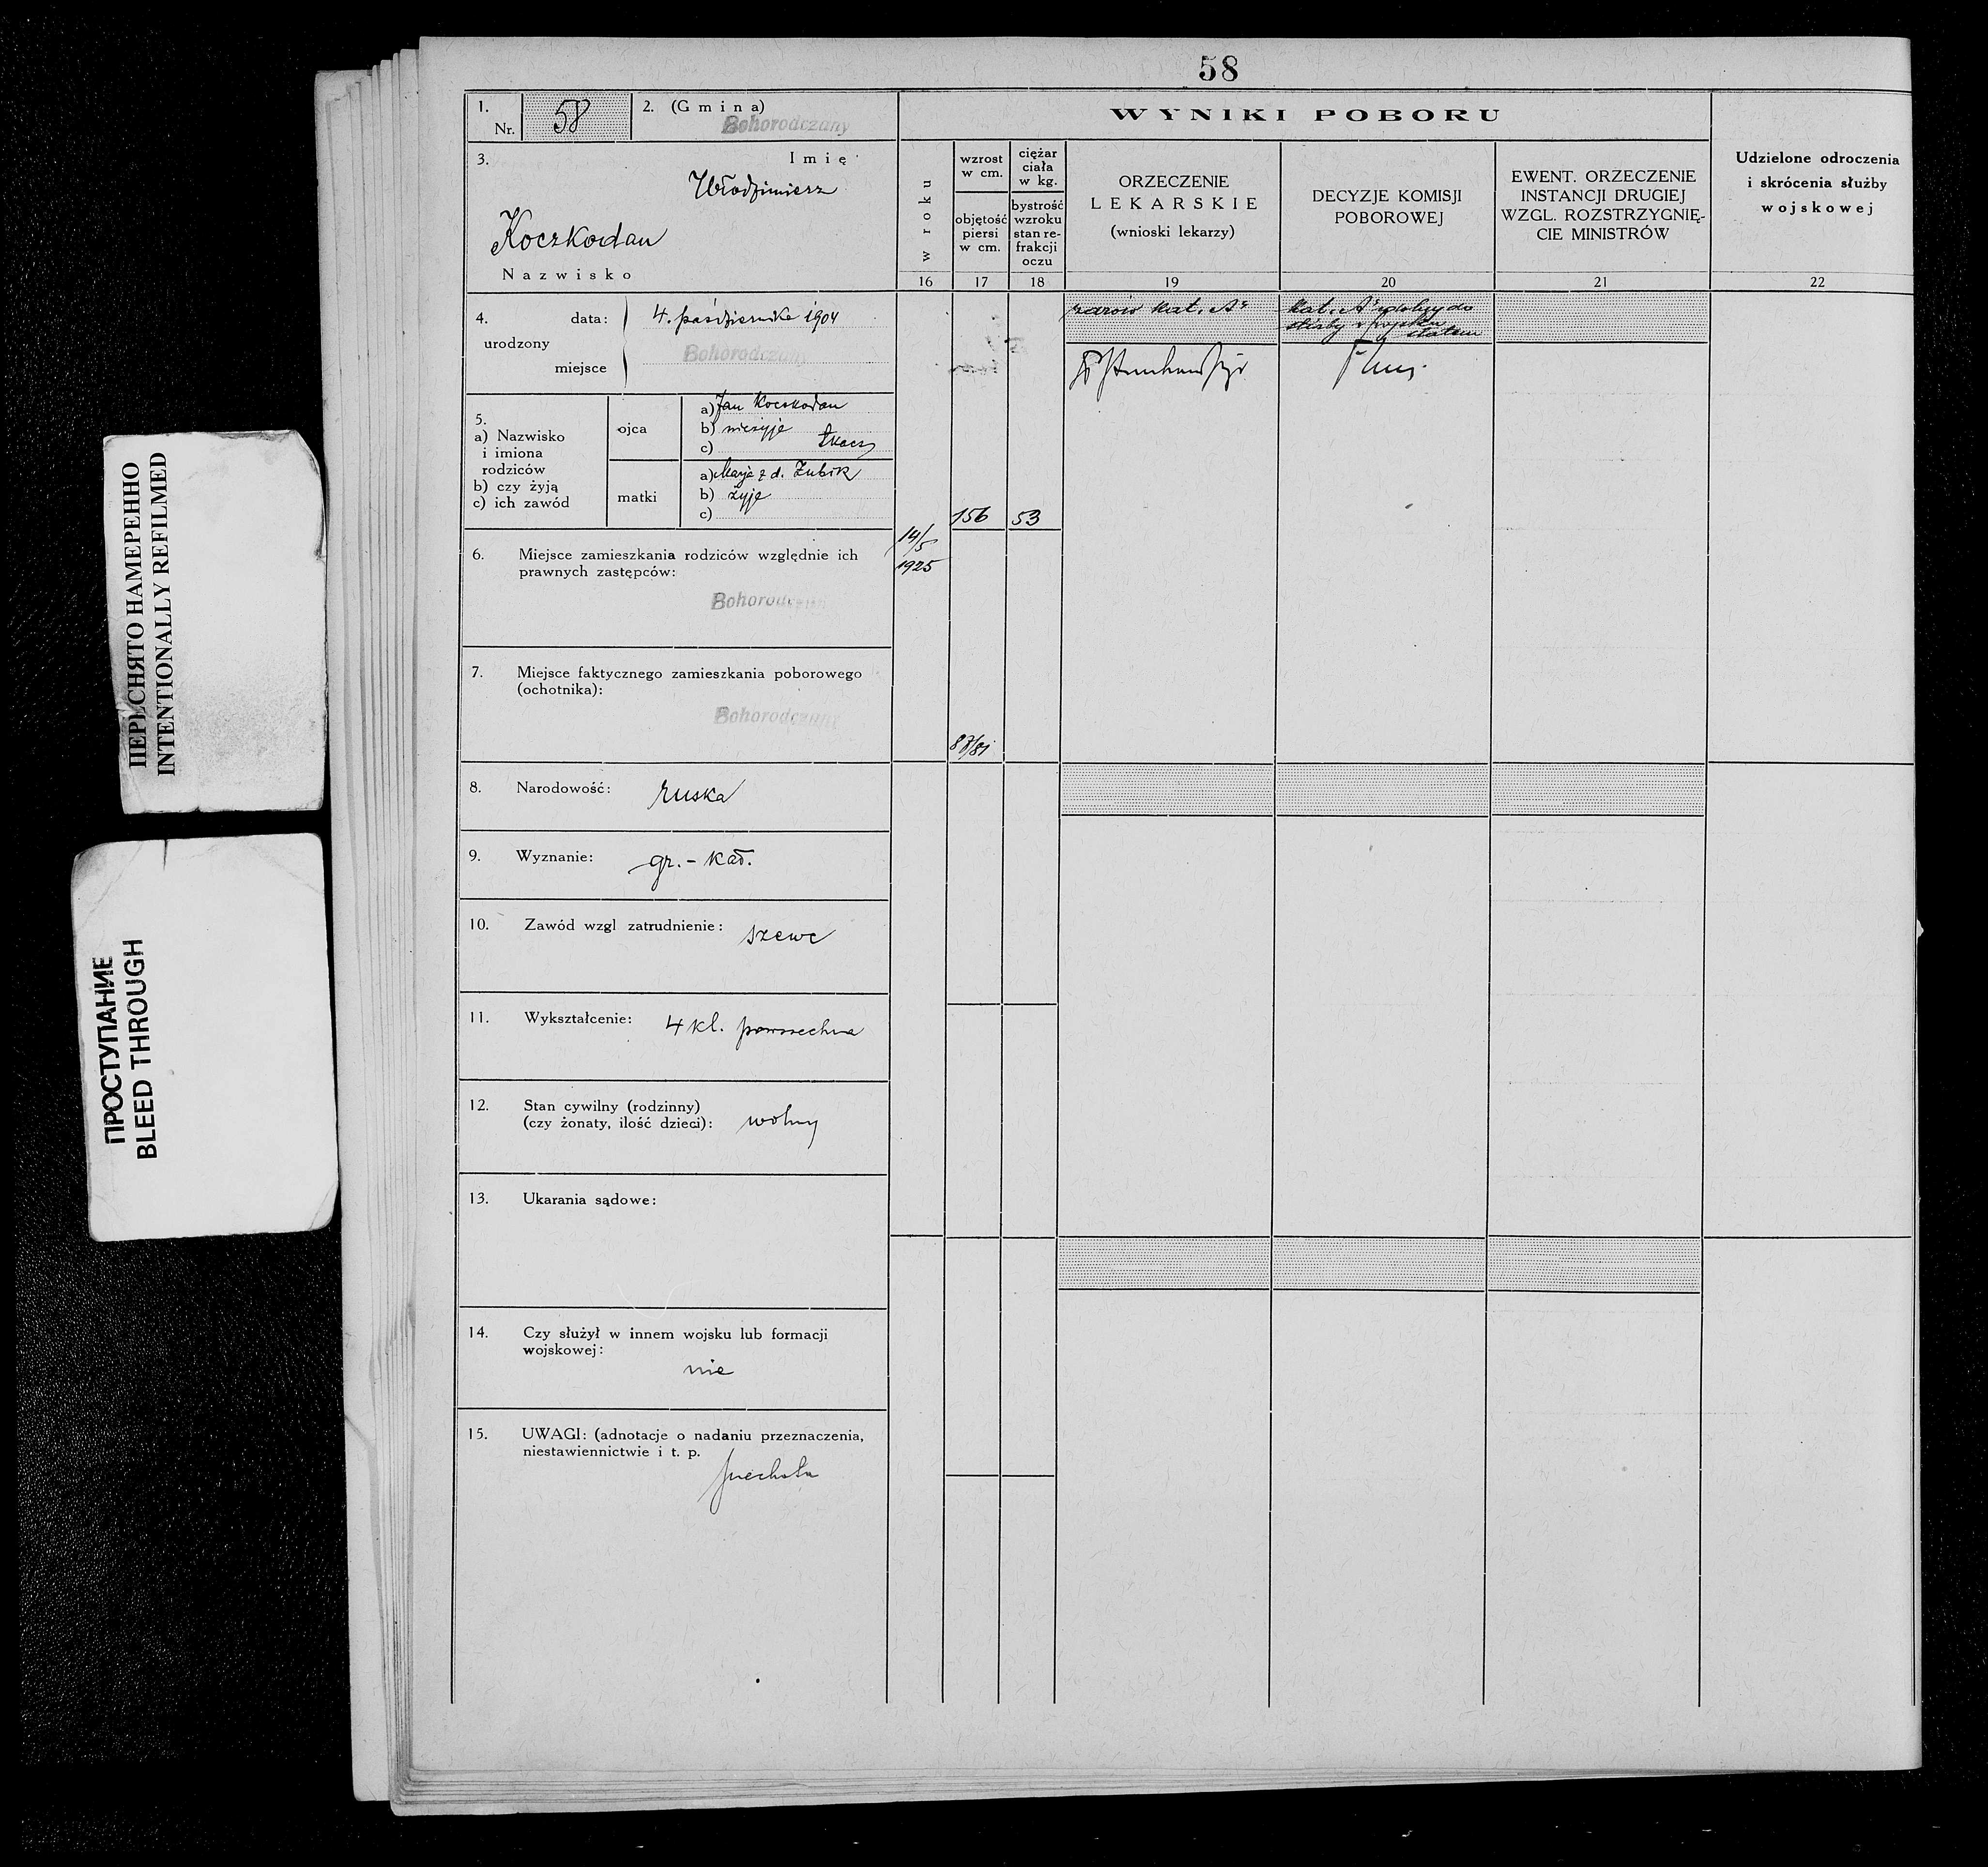 58
1.
Nr. 58
2. (Gmina)
Bohorodczany
3.
Imię
Włodzimierz
Koczkodan
Nazwisko
4.
urodzony
data: 4. października 1904
miejsce Bohorodczany
5.
a) Nazwisko
i imiona
rodziców
b) czy żyją
c) ich zawód
ojca
a) Jan Koczkodan
b) nieżyje
c) tkacz
matki
a) Marja z d. Zubik
b) żyje
c)
6. Miejsce zamieszkania rodziców względnie ich
prawnych zastępców:
Bohorodczany
7. Miejsce faktycznego zamieszkania poborowego
(ochotnika):
Bohorodczany
8. Narodowość: ruska
9. Wyznanie: gr.-kat.
10. Zawód wzgl zatrudnienie: szewc
11. Wykształcenie: 4 kl. powszechna
12. Stan cywilny (rodzinny)
(czy żonaty, ilość dzieci): wolny
13. Ukarania sądowe:
14. Czy służył w innem wojsku lub formacji
wojskowej:
nie
15. UWAGI: (adnotacje o nadaniu przeznaczenia,
niestawiennictwie i t. p.
piechota
WYNIKI POBORU
w roku
16
wzrost
w cm.
objętość
piersi
w cm.
17
ciężar
ciała
w kg.
bystrość
wzroku
stan re-
frakcji
oczu
18
ORZECZENIE
LEKARSKIE
(wnioski lekarzy)
19
DECYZJE KOMISJI
POBOROWEJ
20
EWENT. ORZECZENIE
INSTANCJI DRUGIEJ
WZGL. ROZSTRZYGNIĘ-
CIE MINISTRÓW
21
Udzielone odroczenia
i skrócenia służby
wojskowej
22
14/5
1925
156
53
kat. A
kat. A zdolny do
służby w wojsku
stałem
ПЕРЕСНЯТО НАМЕРЕННО
INTENTIONALLY REFILMED
ПРОСТУПАНИЕ
BLEED THROUGH